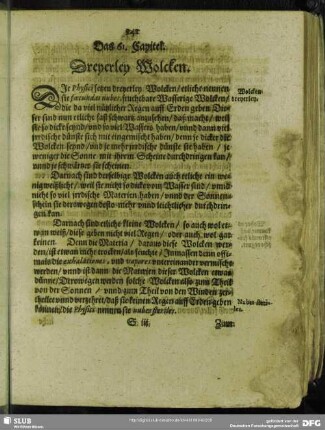 Das 61. Capitel.
Dreyerley Wolcken.
DIe Physici setzen dreyerley Wolcken / etliche nennen
sie fœcundas nubes, fruchtbare Wasserige Wolcken /
die da viel nützlicher Regen auff Erden geben
ser sind nun etliche fast schwartz anzusehen / das macht / weil
sie so dick seynd / und so viel Wassers haben / und dann viel
jrrdische dünste sich mit eingemischt haben / denn je dicker die
Wolcken seynd / und je mehr jrrdische dünste sie haben / je
weniger die Sonne mit jhrem Scheine durchdringen kan /
und je schwärtzer sie scheinen.
Darnach sind derselbige Wolcken auch etliche ein we-
nig weißlicht / weil sie nicht so dicke von Wasser sind / und
nicht so viel jrrdische Materien haben / und der Sonnen-
schein sie deßwegen desto mehr und leichtlicher durchdrin-
gen kan.
Darnach sind etliche kleine Wolcken / so auch wol et-
was weiß / diese geben nicht viel Regen / oder auch wol gar
keinen. Denn die Materia / daraus diese Wolcken wer-
den / ist etwan nicht / als feuchte / Inmassen denn off-
mals die exhalationes, und vapores untereinander vermischt
werden / und ist dann die Materien dieser Wolcken etwas
dünne / Deßwegen werden solche Wolcken also zum Theil
von der Sonnen / und zum Theil von den Winden zer-
theilet und verzehret / daß sie keinen Regen auff Erden geben
können / die Physici nennen sie nubes steriles.
Wolcken
dreyerley.
Nubes steri-
les.
S iij
Zum
SLUB
Wir führen Wissen.
gefördert von der
Deutschen Forschungsgemeinschaft
DFG